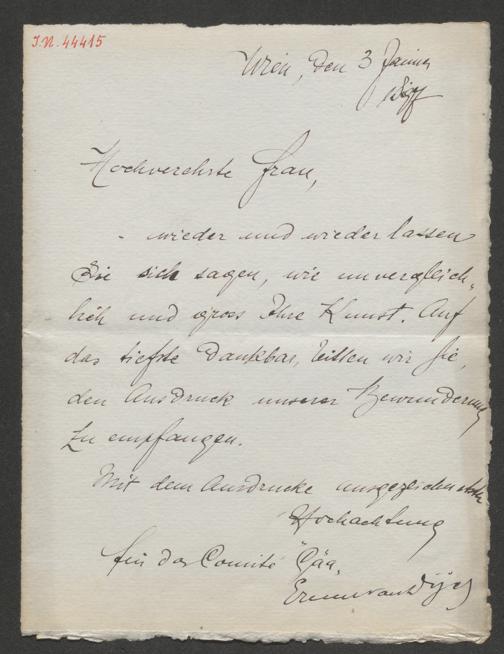 I.N. 44415
Wien, den 3 Jänner
Hochverehrte Frau,
- wieder und wieder lassen
Sie sich sagen, wie unvergleich-
lich und gross Ihre Kunst. Auf
das tiefste Dankbar, bitten wir Sie,
den Ausdruck unserer Bewunderung
zu empfangen.
Mit dem Ausdrucke ausgezeichnetster
Hochachtung
für das Comité